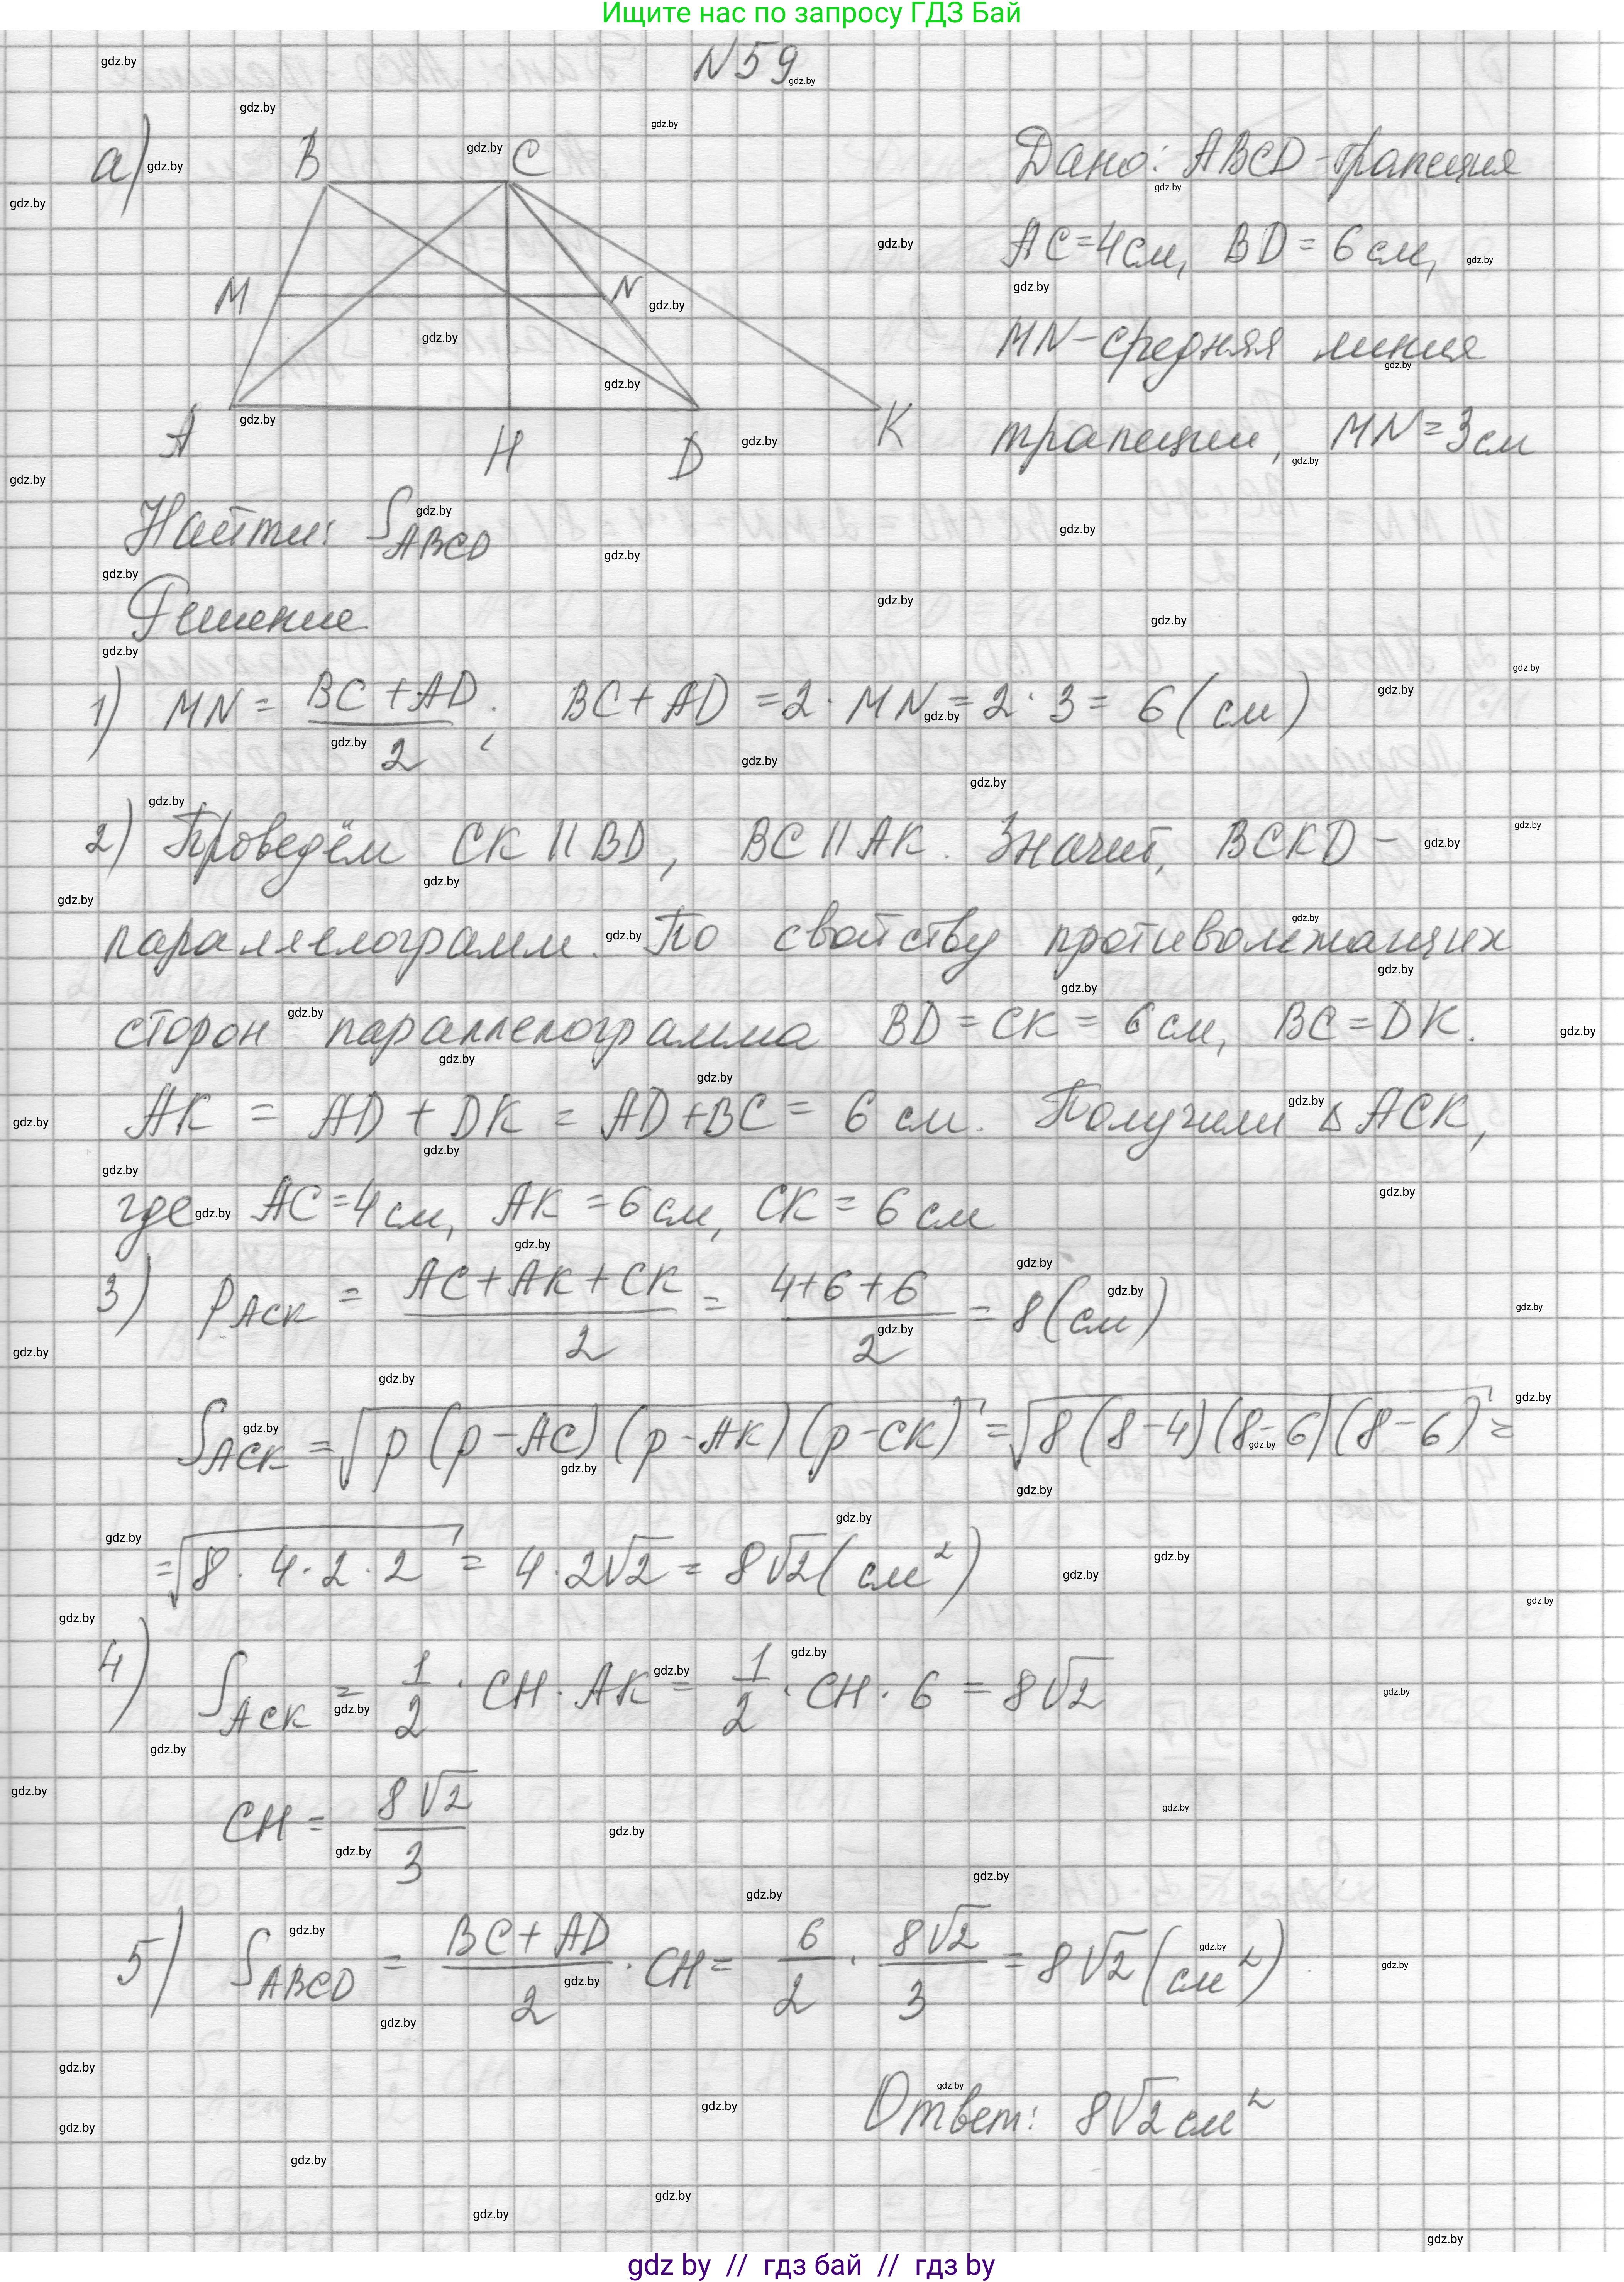 Ищите нас по запросу ГДЗ Бай
N59
а)
B C
M N
A H D K
Дано: ABCD - трапеция
AC=4см, BD = 6 см,
MN - средняя линия
трапеции, MN = 3 см
Найти: S_ABCD
Решение
1) MN = (BC + AD)/2; BC + AD = 2 · MN = 2 · 3 = 6 (см)
2) Проведём CK || BD, BC || AK. Значит, BCKD -
параллелограмм. По свойству противолежащих
сторон параллелограмма BD = CK = 6 см, BC = DK.
AK = AD + DK = AD + BC = 6 см. Получили Δ ACK,
где AC = 4 см, AK = 6 см, CK = 6 см
3) p_ACK = (AC + AK + CK)/2 = (4+6+6)/2 = 8 (см)
S_ACK = √(p (p - AC) (p - AK) (p - CK)) = √(8 (8-4) (8-6) (8-6)) =
= √(8 · 4 · 2 · 2) = 4 · 2√2 = 8√2 (см²)
4) S_ACK = 1/2 · CH · AK = 1/2 · CH · 6 = 8√2
CH = 8√2/3
5) S_ABCD = (BC + AD)/2 · CH = 6/2 · 8√2/3 = 8√2 (см²)
Ответ: 8√2 см²
gdz by // гдз бай // гдз by